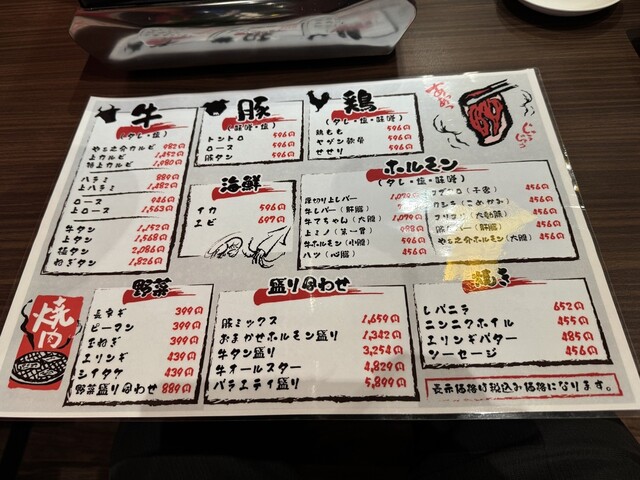 牛
(タレ・塩)
やま之介カルビ 982円
上カルビ 1,452円
特上カルビ 1,980円
ハラミ 889円
上ハラミ 1,482円
ロース 946円
上ロース 1,563円
牛タン 1,152円
上タン 1,568円
極タン 2,086円
ねぎタン 1,826円
豚
(味噌・塩)
トントロ 596円
ロース 596円
豚タン 596円
鶏
(タレ・塩・味噌)
鶏もも 596円
ヤゲン軟骨 596円
せせり 596円
海鮮
イカ 596円
エビ 697円
ホルモン
(タレ・塩・味噌)
厚切り上レバー
牛レバー (肝臓)
牛てちゃん (大腸) 1,079円
上ミノ (第一胃) 988円
牛ホルモン (小腸) 596円
ハツ (心臓) 456円
456円
(こめかみ) 456円
456円
(肝臓) 456円
やま之介ホルモン (大腸) 456円
野菜
長ネギ 399円
ピーマン 399円
玉ねぎ 399円
エリンギ 439円
シイタケ 439円
野菜盛り合わせ 889円
盛り合わせ
豚ミックス 1,659円
おまかせホルモン盛り 1,342円
牛タン盛り 3,254円
牛オールスター 4,829円
バラエティ盛り 5,899円
焼き
レバニラ 652円
ニンニクホイル 455円
エリンギバター 485円
ソーセージ 456円
表示価格は税込み価格になります。
焼肉